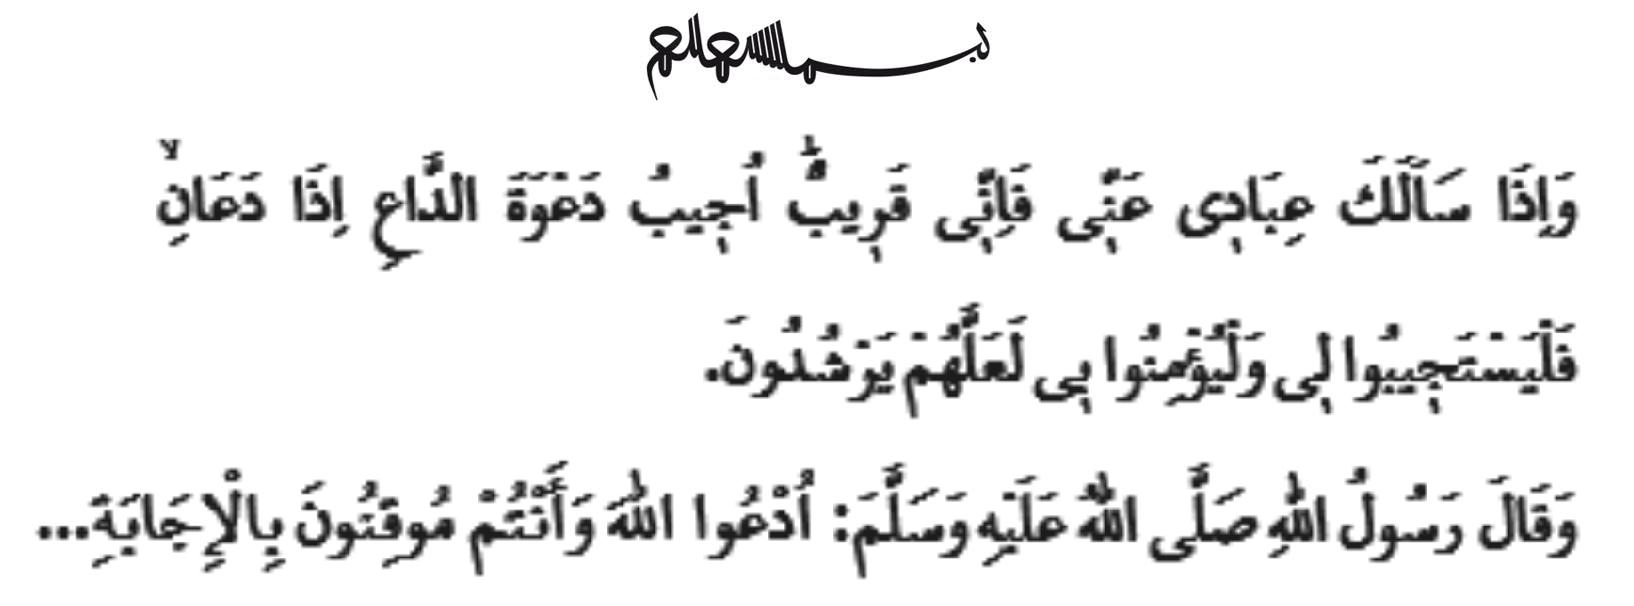 بسم الله الرحمن الرحيم
وَاِذَا سَاَلَكَ عِبَادٖى عَنّٖى فَاِنّٖى قَرٖيبٌؕ اُجٖيبُ دَعْوَةَ الدَّاعِ اِذَا دَعَانِۙ
فَلْيَسْتَجٖيبُوا لٖى وَلْيُؤْمِنُوا بٖى لَعَلَّهُمْ يَرْشُدُونَ.
وَقَالَ رَسُولُ اللّٰهِ صَلَّى اللّٰهُ عَلَيْهِ وَسَلَّمَ: اُدْعُوا اللّٰهَ وَأَنْتُمْ مُوقِنُونَ بِالْإِجَابَةِ...